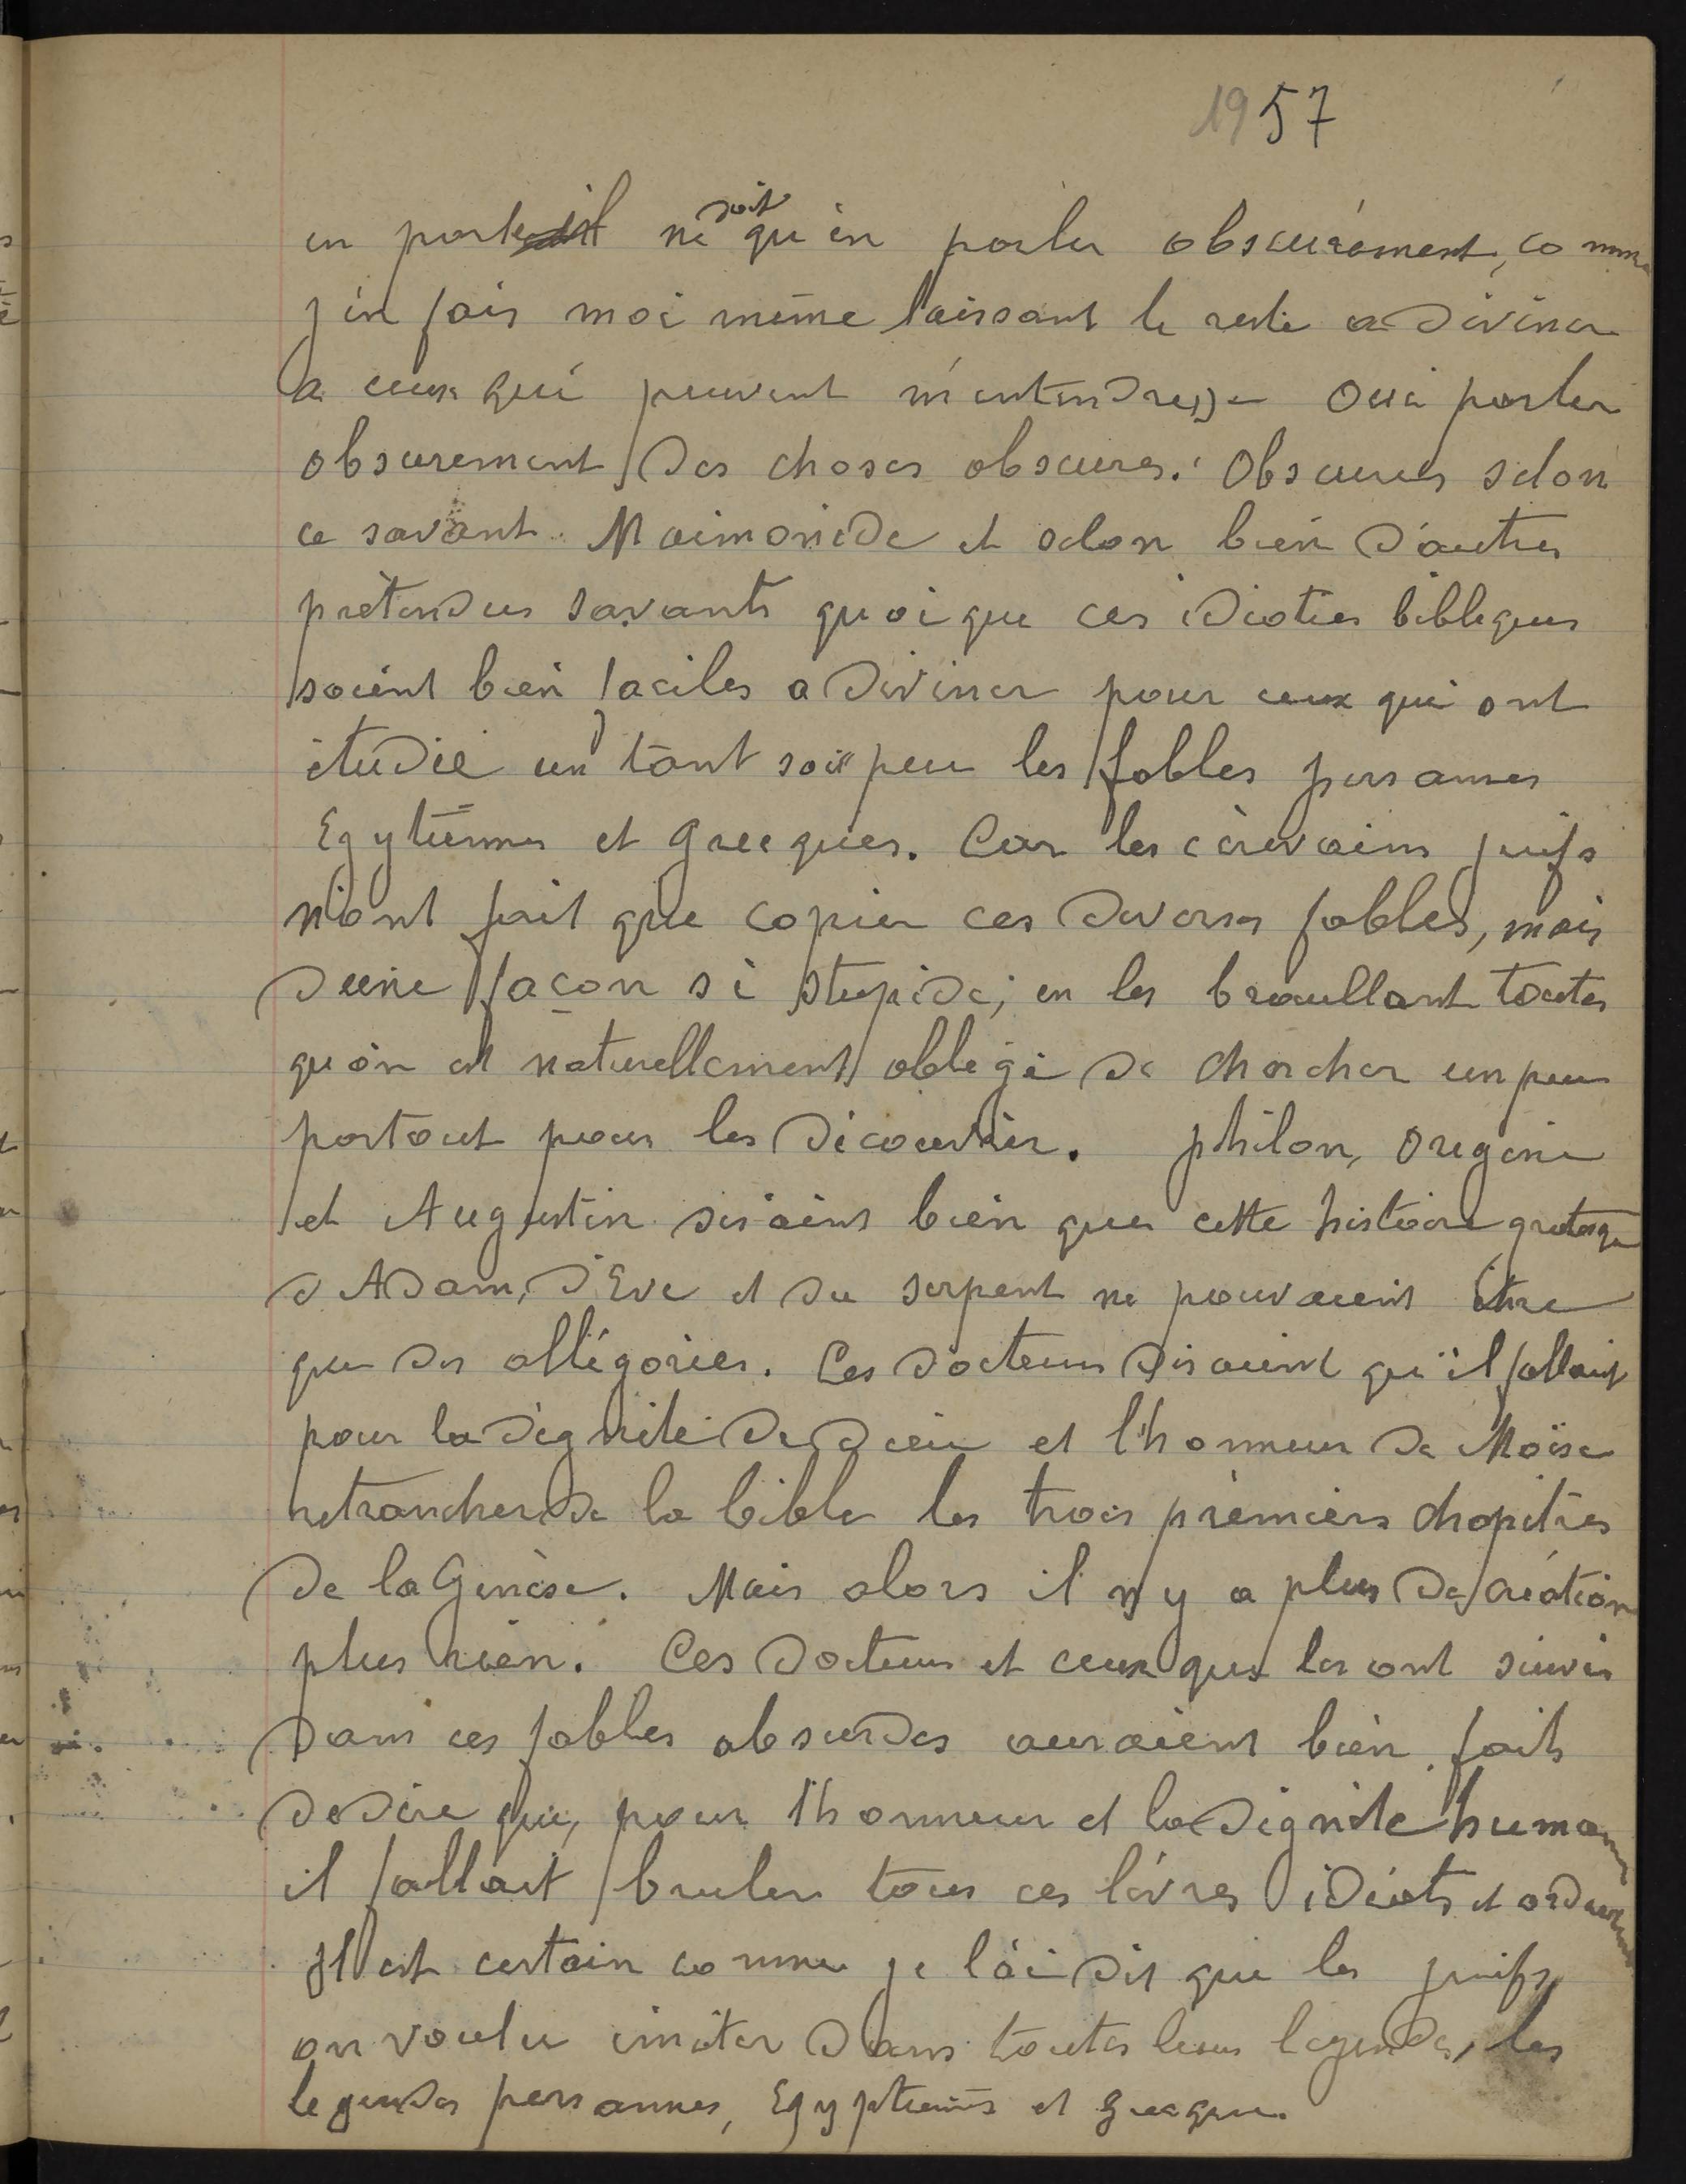 1957
en parle ne doit qu'en parler obscurément, comme
j'en fais moi même laissant le reste a deviner
a ceux qui peuvent m'entendre » - Oui parler
obscurement des choses obscures. Obscures selon
ce savant Maimonide et selon bien d'autres
prétendus savants quoique ces idioties bibliques
soient bien faciles a deviner pour ceux qui ont
étudié un tant soit peu les fables persannes
Egytiennes et Grecques. Car les écrivains juifs
n'ont fait que copier ces diverses fables, mais
d'une façon si stupide, en les brouillant toutes
qu'on est naturellement obligé de chercher un peu
partout pour les découvrir. philon, Origène
et Augustin disaient bien que cette histoire grotesque
d'Adam, d'Eve et du serpent ne pouvaient être
que des allégories. Ces docteurs disaient qu'il fallait
pour la dignité de dieu et l'honneur de Moïse
retrancher de la bible les trois prémiers chapitres
de la Genèse. Mais alors il n'y a plus de création
plus rien. Ces docteurs et ceux qui les ont suivis
dans ces fables absurdes auraient bien faits
de dire que, pour l'honneur et la dignité humaine
il fallait bruler tous ces livres idiots et
Il est certain comme je l'ai dit que les juifs
on voulu imiter dans toutes leurs legendes, les
legendes persannes, Egyptiennes et Grecques.